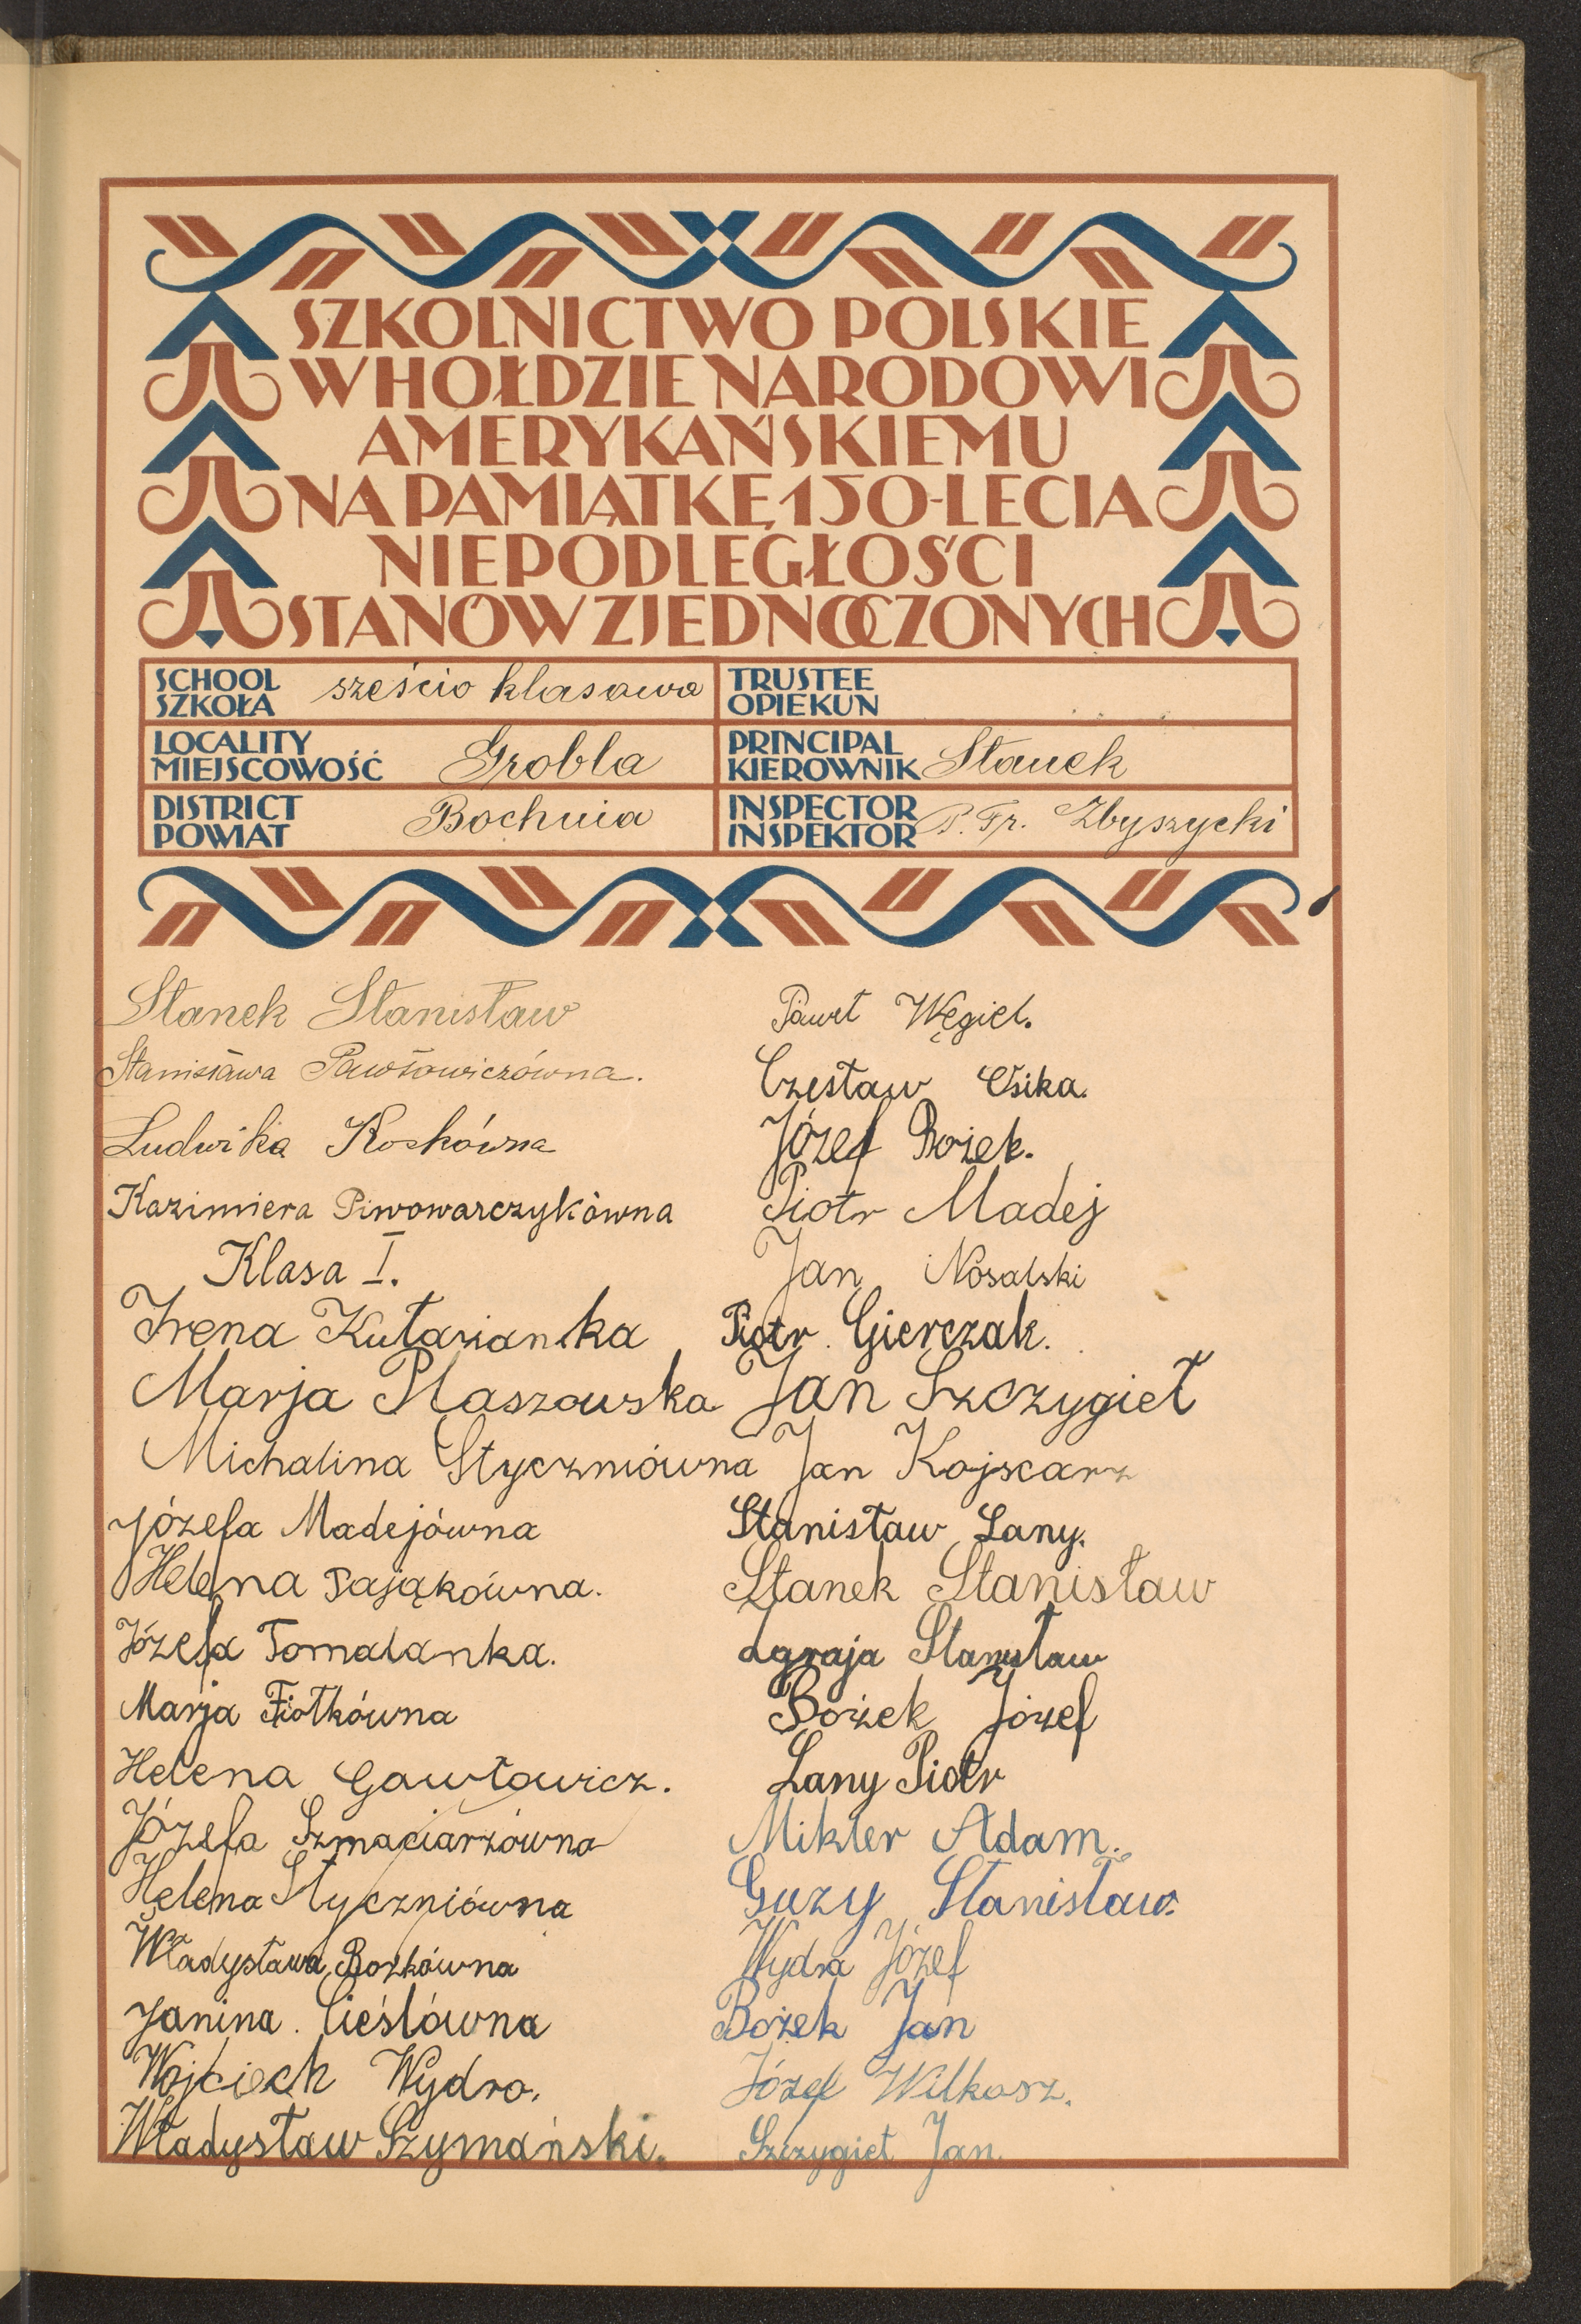 SZKOLNICTWO POLSKIE
W HOŁDZIE NARODOWI
AMERYKAŃSKIEMU
NA PAMIĄTKĘ 150-LECIA
NIEPODLEGŁOŚCI
STANÓW ZJEDNOCZONYCH
SCHOOL
SZKOŁA
sześcio klasowa
TRUSTEE
OPIEKUN
LOCALITY
MIEJSCOWOŚĆ
Grobla
PRINCIPAL
KIEROWNIK
Stanek
DISTRICT
POWIAT
Bochnia
INSPECTOR
INSPEKTOR
P. Fr. Zbyszycki
Stanek Stanisław
Stanisława Pawłowiczówna.
Ludwika Kochówna
Kazimiera Piwowarczykówna
Klasa I.
Irena Kułazianka
Marja Płaszowska
Michalina Styczniówna
Józefa Madejówna
Helena Pająkówna.
Józefa Tomalanka.
Marja Fiołkówna
Helena Gawłowicz.
Józefa Szmaciarzówna
Helena Styczniówna
Władysława Bożkówna
Janina. Cieślówna
Wojciech Wydra.
Władysław Szymański.
Paweł Węgiel.
Czesław Osika.
Józef Bożek.
Piotr Madej
Jan Nosalski
Piotr Gierczak.
Jan Szczygieł
Jan Kojscarz
Stanisław Lany.
Stanek Stanisław
Stanisław
Bożek Józef
Lany Piotr
Mikler Adam.
Guzy Stanisław.
Wydra Józef
Bożek Jan
Józef Wilkosz.
Szczygieł Jan.